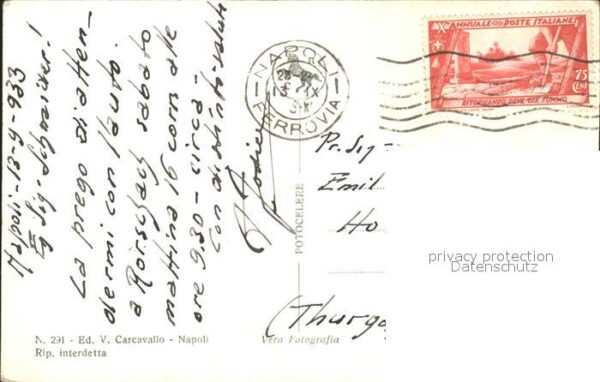 Napoli - 13-9-933
Eg. Sig. Schmider!
La prego di atten-
dermi con l'auto.
a Rorschach sabato
mattina 16 corr. alle
ore 9.30 - circa -
Con distinti saluti
X ANNUALE - POSTE ITALIANE
75
CENT
RITORNANDO DOVE GIA FUMMO
NAPOLI
FERROVIA
Pr. Sig.
Emil
Ho
(Thurgo
privacy protection
Datenschutz
FOTOCELERE
N. 291 - Ed. V. Carcavallo - Napoli
Rip. interdetta
Vera Fotografia